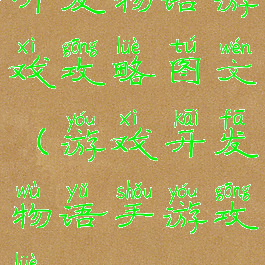 开发物语游
xì gōng lüè tú wén
戏攻略图文
yóu xì kāi fā
(游戏开发
wù yǔ shǒu yóu gōng
物语手游攻
lüè